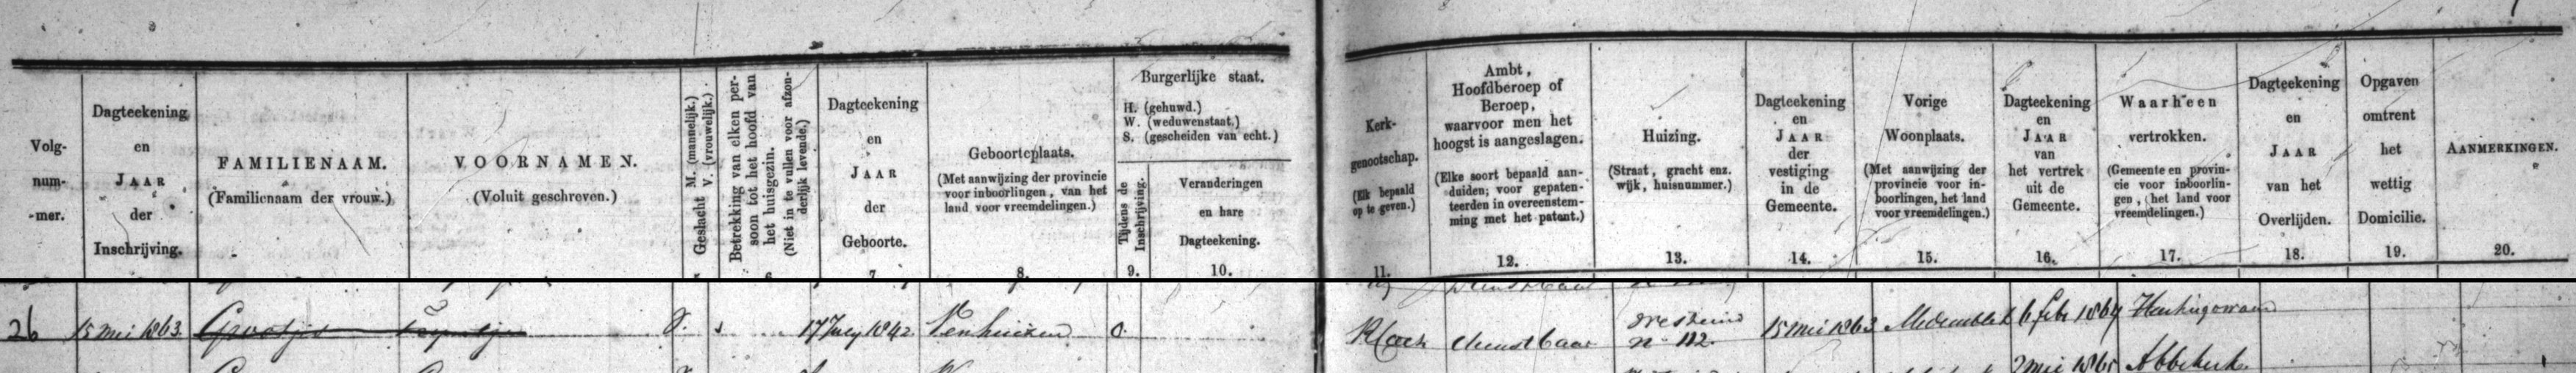 Volg-
num-
-mer.
Dagteekening
en
JAAR
der
Inschrijving.
FAMILIENAAM.
(Familienaam der vrouw.)
VOORNAMEN.
(Voluit geschreven.)
Geslacht M. (mannelijk.)
V. (vrouwelijk.)
Betrekking van elken per-
soon tot het hoofd van
het huisgezin.
(Niet in te vullen voor afzon-
derlijk levende.)
6
Dagteekening
en
JAAR
der
Geboorte.
7
Geboorteplaats.
(Met aanwijzing der provincie
voor inboorlingen, van het
land voor vreemdelingen.)
8.
Burgerlijke staat.
H. (gehuwd.)
W. (weduwenstaat.)
S. (gescheiden van echt.)
Tijdens de
Inschrijving.
9.
Veranderingen
en hare
Dagteekening.
10.
Kerk-
genootschap.
(Elk bepaald
op te geven.)
11.
Ambt,
Hoofdberoep of
Beroep,
waarvoor men het
hoogst is aangeslagen.
(Elke soort bepaald aan-
duiden; voor gepaten-
teerden in overeenstem-
ming met het patent.)
12.
Huizing.
(Straat, gracht enz.
wijk, huisnummer.)
13.
Dagteekening
en
JAAR
der
vestiging
in de
Gemeente.
14.
Vorige
Woonplaats.
(Met aanwijzing der
provincie voor in-
boorlingen, het land
voor vreemdelingen.)
15.
Dagteekening
en
JAAR
van
het vertrek
uit de
Gemeente.
16.
Waarheen
vertrokken.
(Gemeente en provin-
cie voor inboorlin-
gen, het land voor
vreemdelingen.)
17.
Dagteekening
en
JAAR
van het
Overlijden.
18.
Opgaven
omtrent
het
wettig
Domicilie.
19.
AANMERKINGEN.
20.
26 15 Mei 1863 Grootjes V. 17 July 1842 Venhuizen O. R Cath dienstbaar
no 112. 15 Mei 1863 Medemblik 6 feb 1864 Haringcarspel
2 Mei 1865 Abbekerk